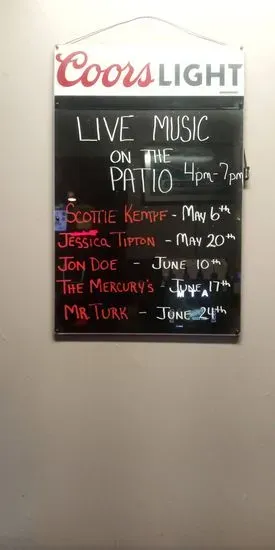 Coors LIGHT
LIVE MUSIC
ON THE
PATIO 4pm-7pm
SCOTTIE KEMPF - MAY 6th
JESSICA TIPTON - MAY 20th
JON DOE - JUNE 10th
THE MERCURY'S - JUNE 17th
MR TURK - JUNE 24th